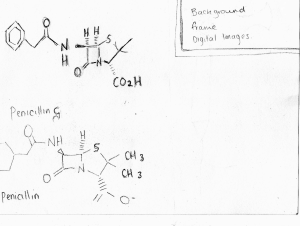 Background
frame
Digital Images
O
H H
NH
S
N
O
CO2H
Penicillin G
O
H
NH
S
CH3
CH3
N
O
O-
Penicillin